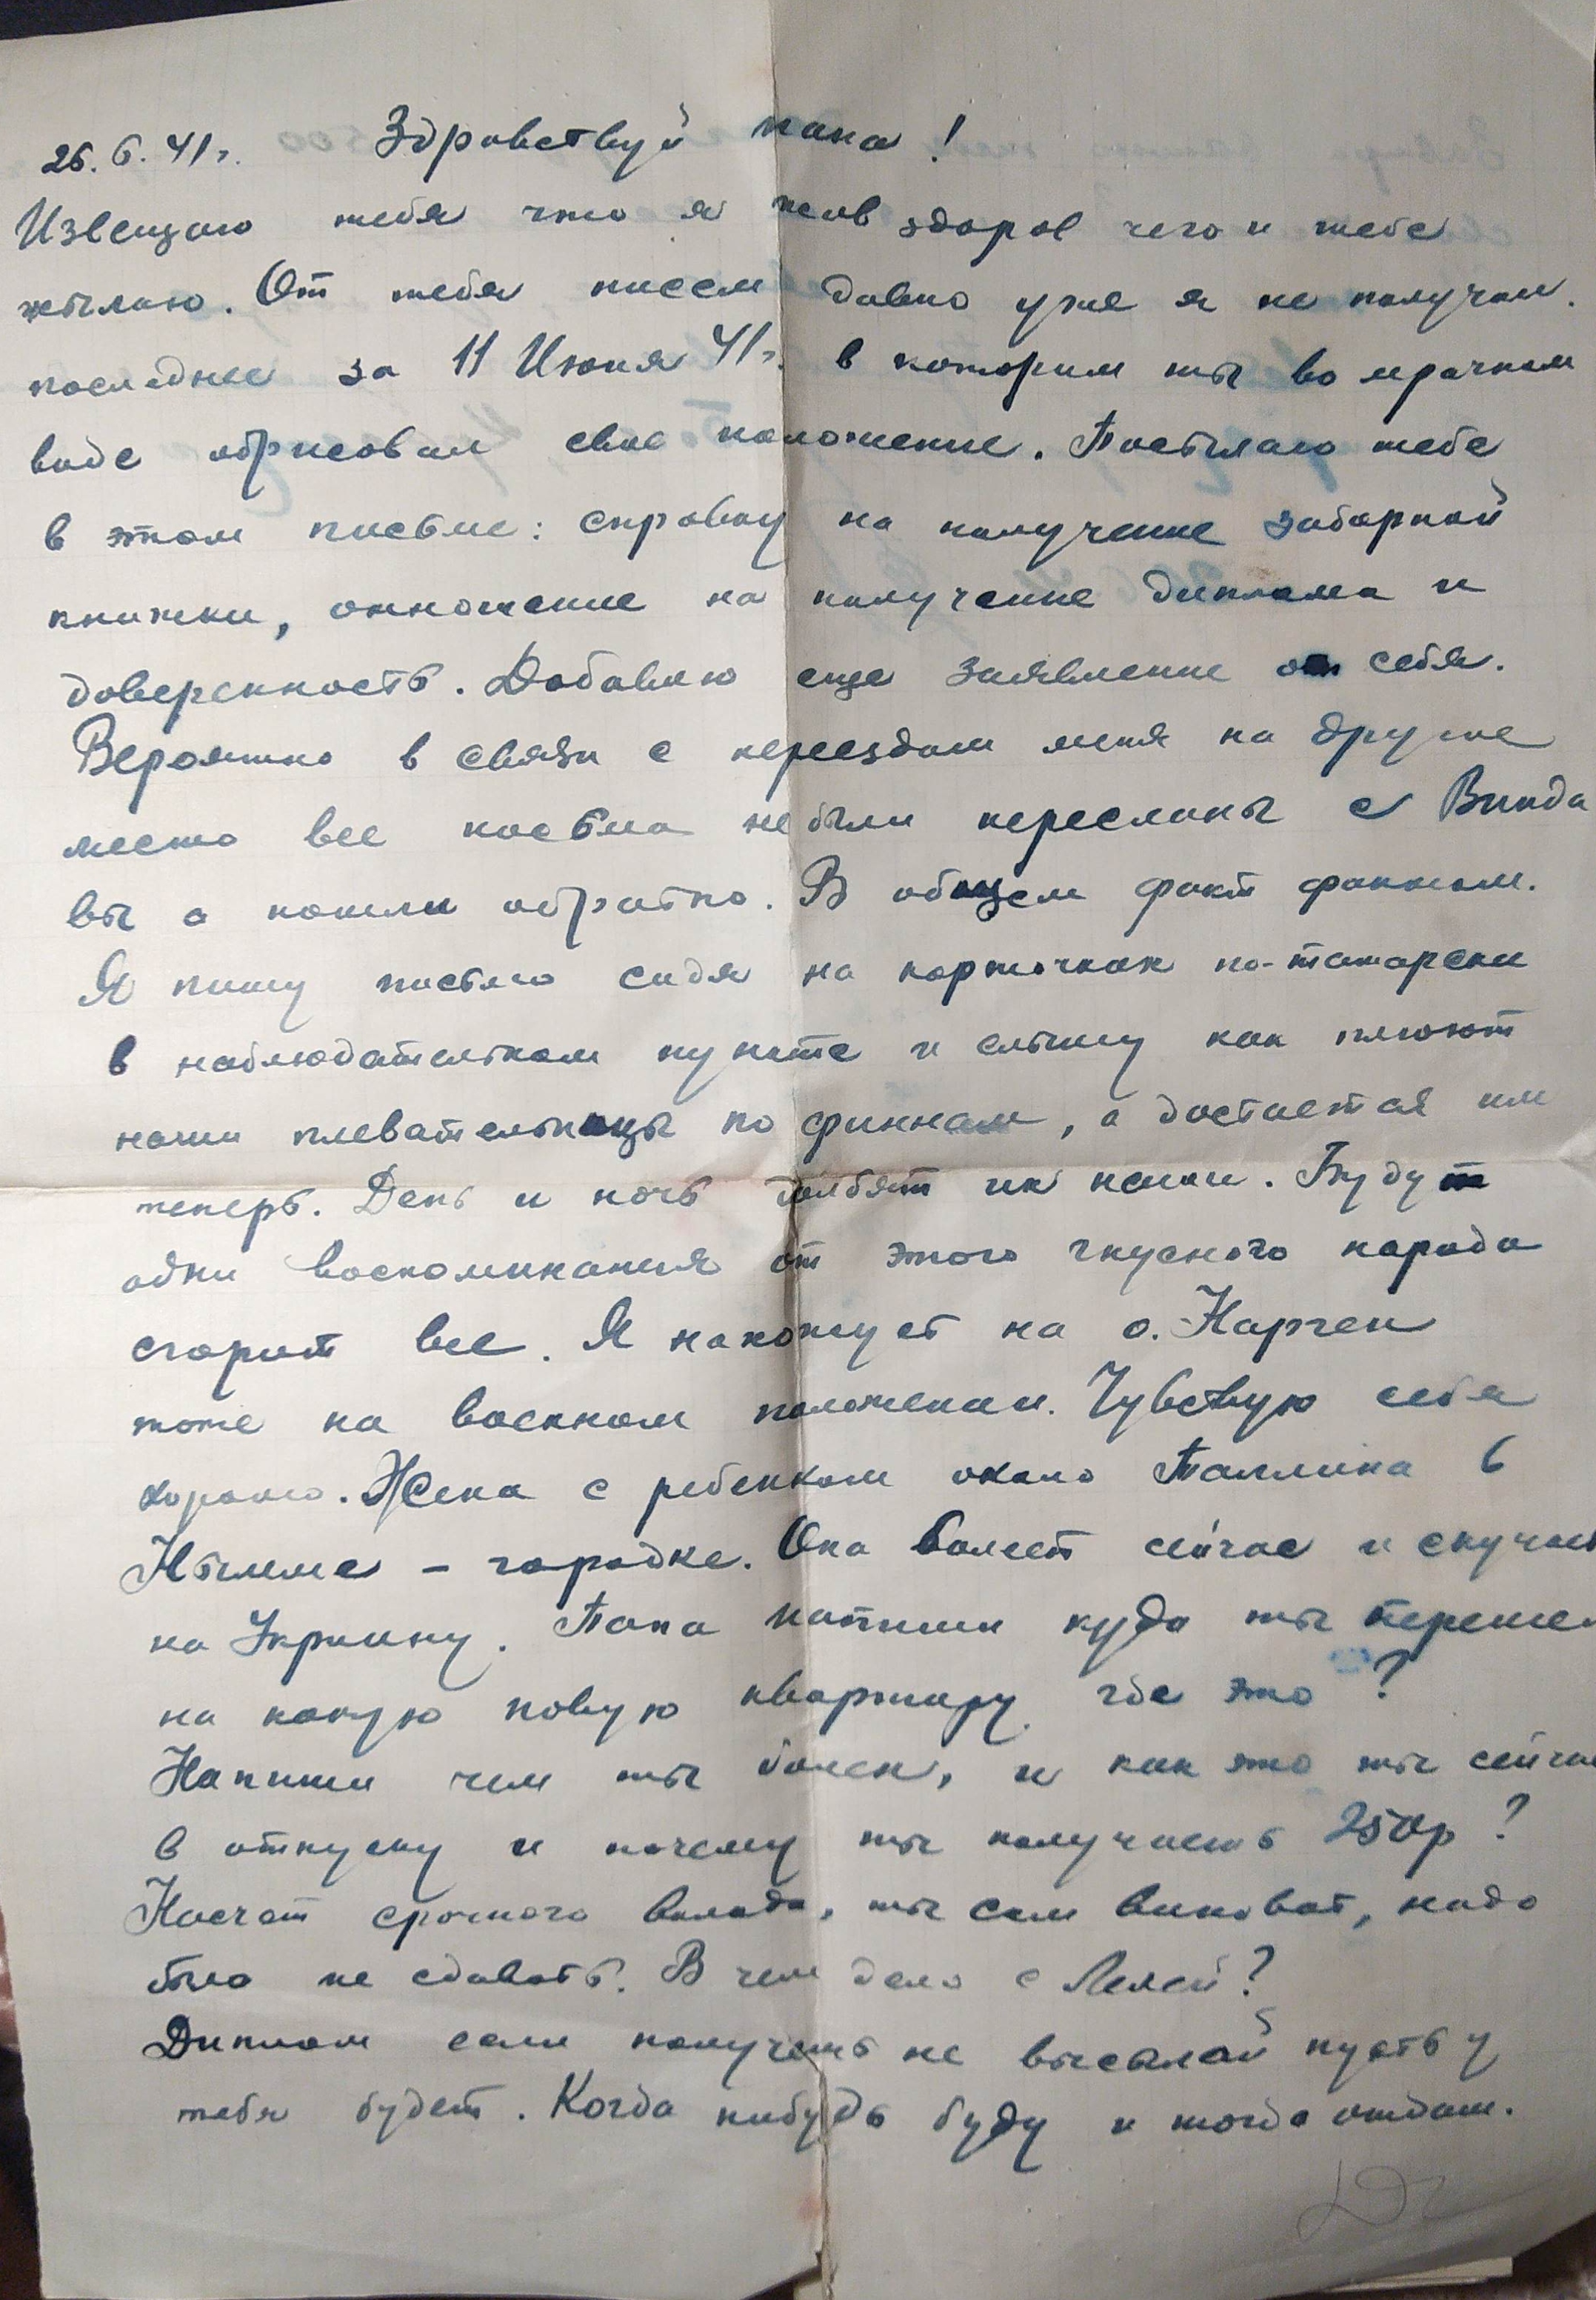 26. 6. 41 г. Здравствуй папа!
Извещаю тебя что я жив здоров чего и тебе
желаю. От тебя писем давно уже я не получал.
последнее за 11 Июня 41 г. в котором ты во мрачном
виде обрисовал свое положение. Посылаю тебе
в этом письме: справку на получение заборной
книжки, отношение на получение диплома и
доверенность. Добавлю еще заявление от себя.
Вероятно в связи с переездом меня на друге
место все письма не были пересланы с Винда
вы а пошли обратно. В общем факт фактом.
Я пишу письмо сидя на корточках по-татарски
в наблюдательном пункте и слышу как плюют
наши плевательницы по финнам, а достается им
теперь. День и ночь долбят их наши. Будут
одни воспоминания от этого гнусного народа
сгорит все. Я нахожусь на о. Нарген
тоже на военном положении. Чувствую себя
хорошо. Жена с ребенком около Таллина в
Нымме - городке. Она болеет сейчас и скучает
на Украину. Папа напиши куда ты перешел
на какую новую квартиру где это?
Напиши чем ты болен, и как это ты сейчас
в отпуску и почему ты получаешь 250р?
Насчет срочного вклада, ты сам виноват, надо
было не сдавать. В чем дело с Лелей?
Диплом если получишь не высылай пусть у
тебя будет. Когда нибудь буду и тогда отдаш.